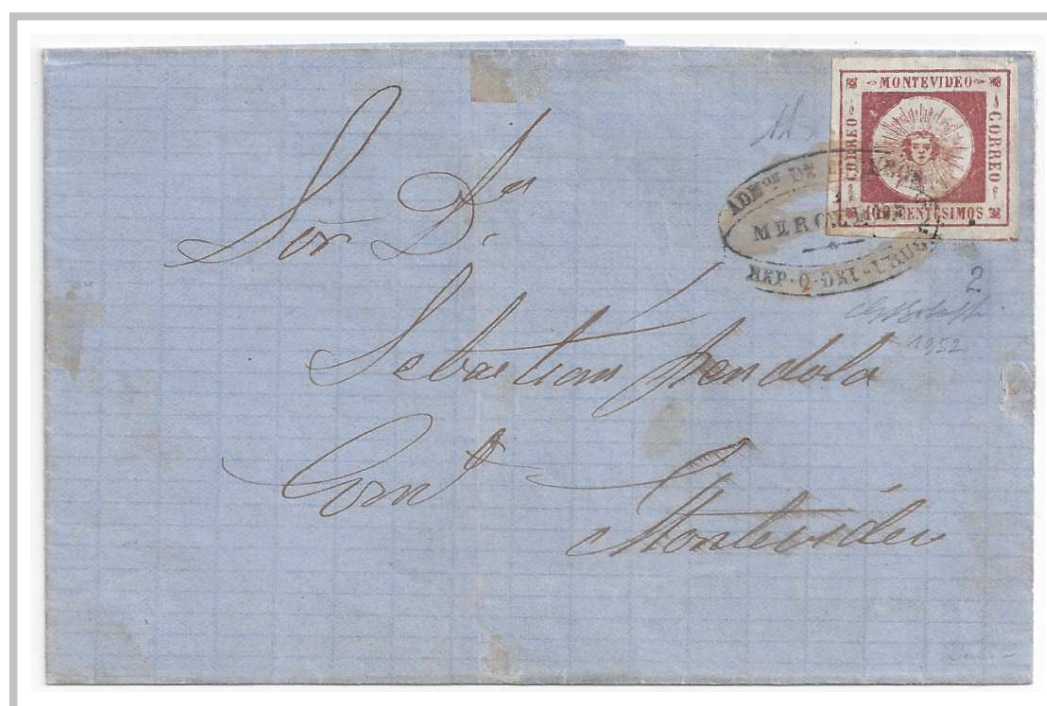 MONTEVIDEO
CORREO
CORREO
100 CENTESIMOS
ADMon DE
MERCEDES
REP·O·DEL·URUG
Sor Dn
Sebastian Pendola
Comte
Montevideo
2
1952